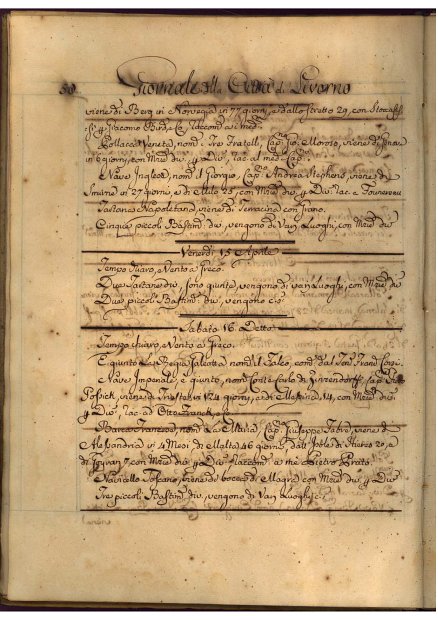 50 Giornale della Città di Livorno
viene di Berg in Norvegia in 77 giorni, e dallo stretto 29, con Stoccafissi
Giacomo Bird, e Ca
Pollacca Veneta, nom. i Tre Fratelli, Cap. Gio: Moroso, viene di
in 6 giorni, con Merci div. p. Div. rac. al med. Cap.
Nave Inglese, nom. il Giorgio, Cap. Andrea Stephens, viene di
Smirne in 27 giorni, e di Milo 25, con Merci div. p. Div. rac. a
Tartana Napoletana, viene di Terracina con grano.
Cinque piccoli Bastim. div. vengono di Varj Luoghi, con Merci div.
Venerdì 15 Aprile
Tempo Vento a Greco.
Due Tartane div. sono giunte, vengono di varj Luoghi, con Merci div.
Due piccoli Bastim. div. vengono
Sabato 16 Detto
Tempo chiaro, e Vento a Greco.
È giunto La Regia Galeotta nom. il Falco, com. dal
Nave Imperiale, è giunto, nom. Conte Carlo di Zinzendorff, Cap.
viene di Trieste in 124 giorni, e di Messina 14, con Merci div.
p. Div. rac. ad Otto Franck, e
Barca Francese, nom. La Maria, Cap. Giuseppe Fabro, viene di
Alessandria in 4 Mesi di Malta 46 giorni, dall' Isole di Hieres 20, e
di 7, con Merci div. p. Div. raccom. a me Pietro Prato.
Navicello Toscano, viene di bocca di Magra con Merci div. p. Div.
Tre piccoli Bastim. div. vengono di Varj Luoghi